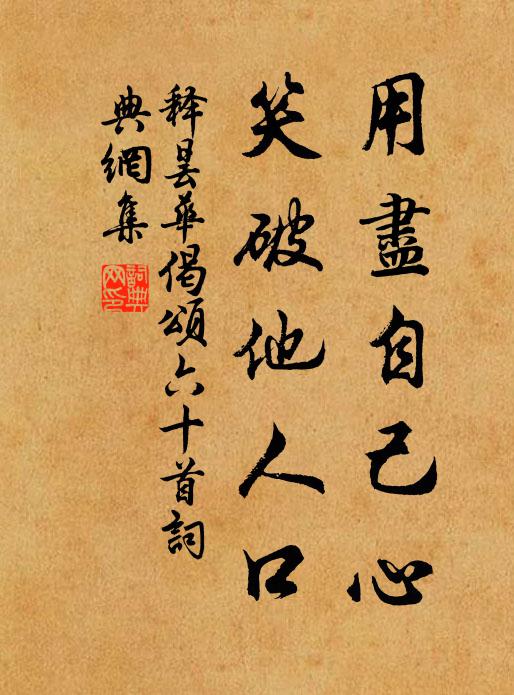 用盡自己心
笑破他人口
釋曇華偈頌六十首詞
典網集
詞典
網印